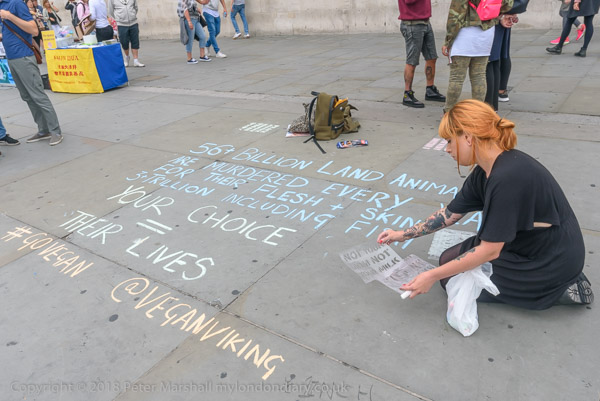 56+ BILLION LAND ANIMA
ARE MURDERED EVERY
FOR THEIR FLESH + SKIN
INCLUDING FISH
YOUR CHOICE
=
THEIR LIVES
#GOVEGAN
@VEGANVIKING
NOT
NOT
MILK
Copyright © 2018 Peter Marshall mylondondiary.co.uk